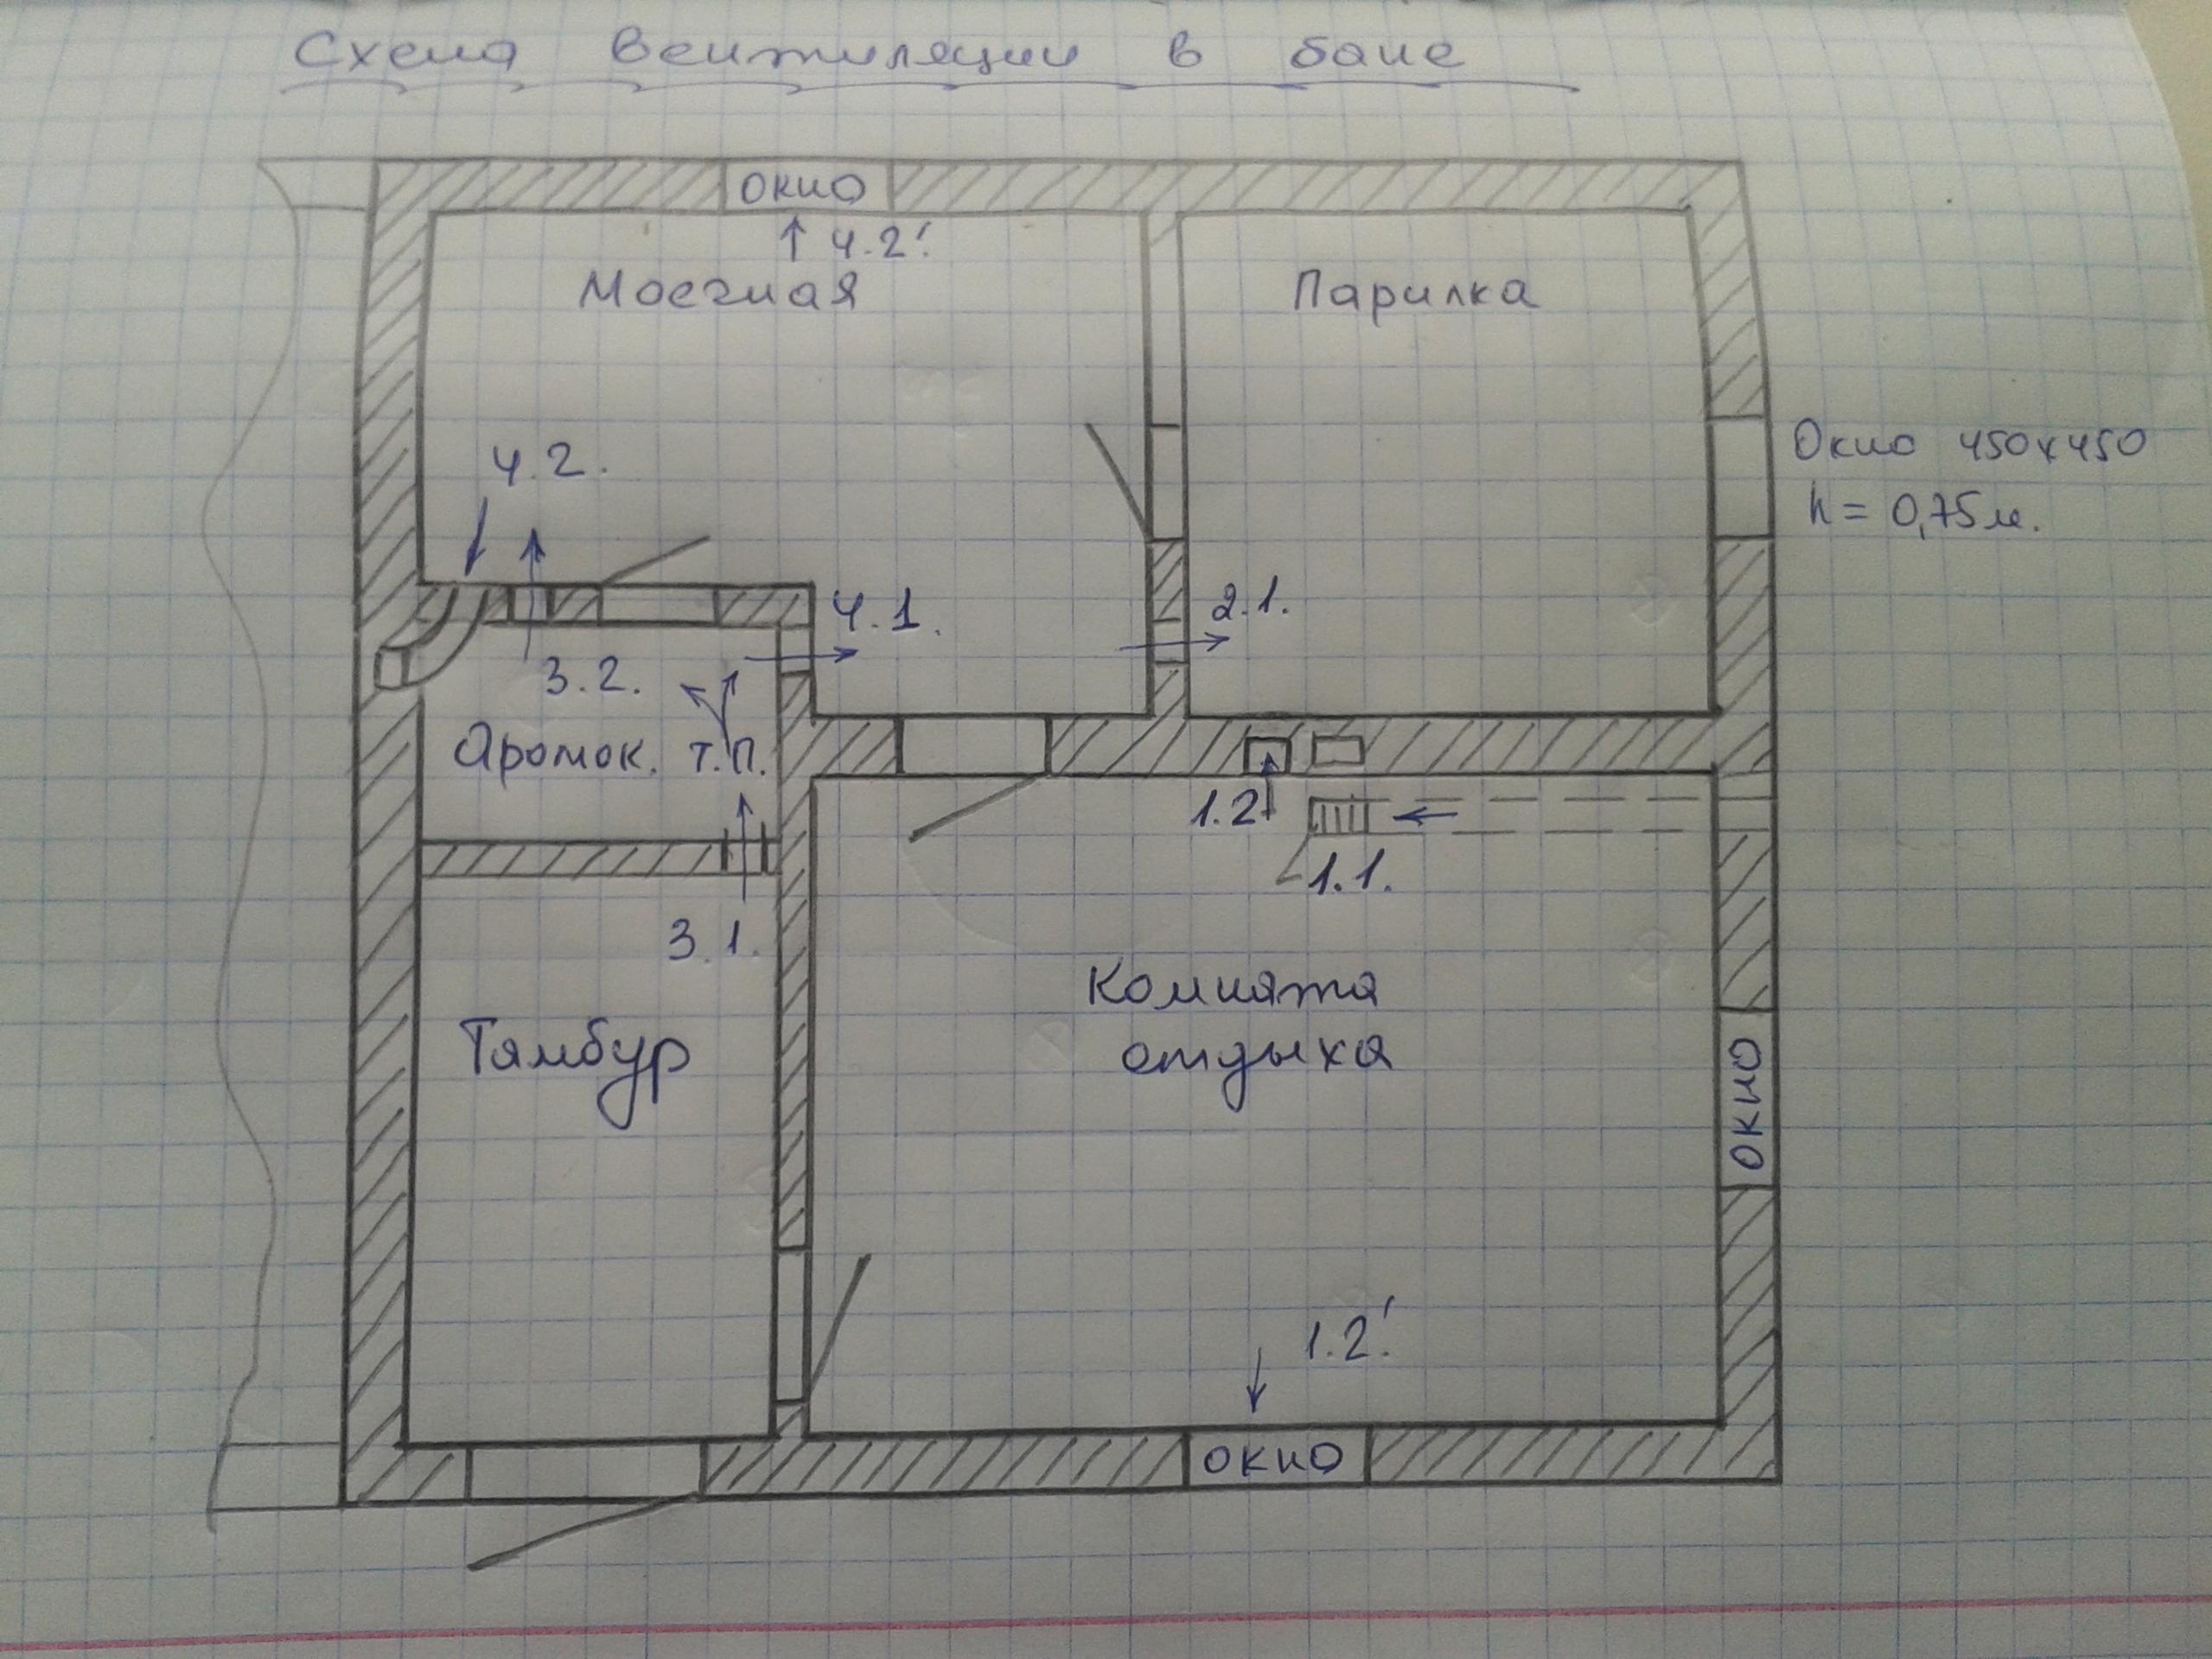 Схема вентиляции в бане
окно
4.2'.
Моечная
Парилка
Окно 450х450
h = 0,75м.
4.2.
4.1.
2.1.
3.2.
Аромок. т.п.
1.2
1.1.
3.1.
Комната
отдыха
Тамбур
окно
1.2'.
окно